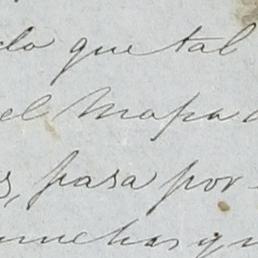 do que tal
el Mapa d
s, pasa por
muchas qu